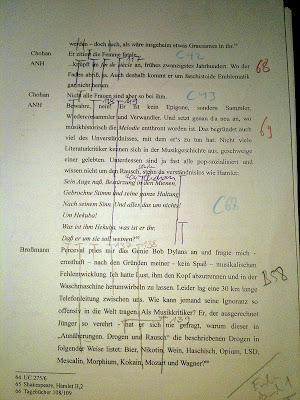 werden – doch auch, als wäre ungeheim etwas Grausames in ihr."
Chohan Er zitiert die Femme fatale C42
ANH knüpft an fin de siècle an, frühes zwanzigstes Jahrhundert. Wo der 68
Faden abriß, ja. Auch deshalb kommt er um faschistoide Emblematik
gar nicht herum.
Chohan Nicht alle Frauen sind aber so bei ihm. C43
ANH Bewahre, nein! Er ist kein Epigone, sondern Sammler,
Wiederversammler und Verwandler. Und setzt genau da neu an, wo
musikhistorisch die Melodie entthront worden ist. Das begründet auch 69
viel des Unverständnisses, mit dem er's zu tun hat. Nicht viele
Literaturkritiker kennen sich in der Musikgeschichte aus, geschweige
einer gelebten. Unterdessen sind ja fast alle pop-sozialisiert und
wissen nicht um den Rausch, stehn da verständnislos wie Hamlet:
Sein Auge naß, Bestürzung in den Mienen,
Gebrochne Stimm und seine ganze Haltung
Nach seinem Sinn. Und alles das um nichts!
Um Hekuba!
Was ist ihm Hekuba, was ist er ihr,
Daß er um sie soll weinen?
Broßmann Perceval pries mir das Genie Bob Dylans an und fragte mich -
ernsthaft – nach den Gründen meiner – kein Spaß – musikalischen
Fehlentwicklung. Ich hatte Lust, ihm den Kopf abzutrennen und in der
Waschmaschine herumwirbeln zu lassen. Leider lag eine 30 km lange B58
Telefonleitung zwischen uns. Wie kann jemand seine Ignoranz so
offensiv in die Welt tragen. Als Musikkritiker? Er, der ausgerechnet
Jünger so verehrt – hat er sich nie gefragt, warum dieser in
„Annäherungen. Drogen und Rausch" die beschriebenen Drogen in
folgender Weise listet: Bier, Nikotin, Wein, Haschisch, Opium, LSD,
Mescalin, Morphium, Kokain, Mozart und Wagner?
64 UC 275/6
65 Shakespeare, Hamlet II,2
66 Tagebücher 108/109